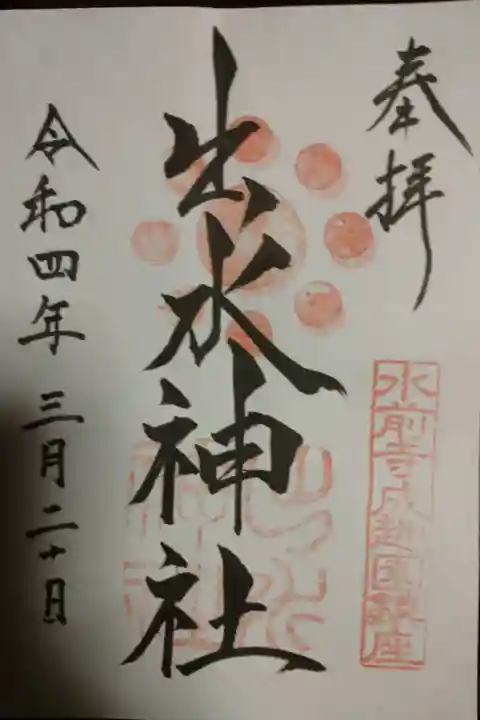 奉拝
水前寺成趣園鎮座
出水神社
令和四年三月二十日